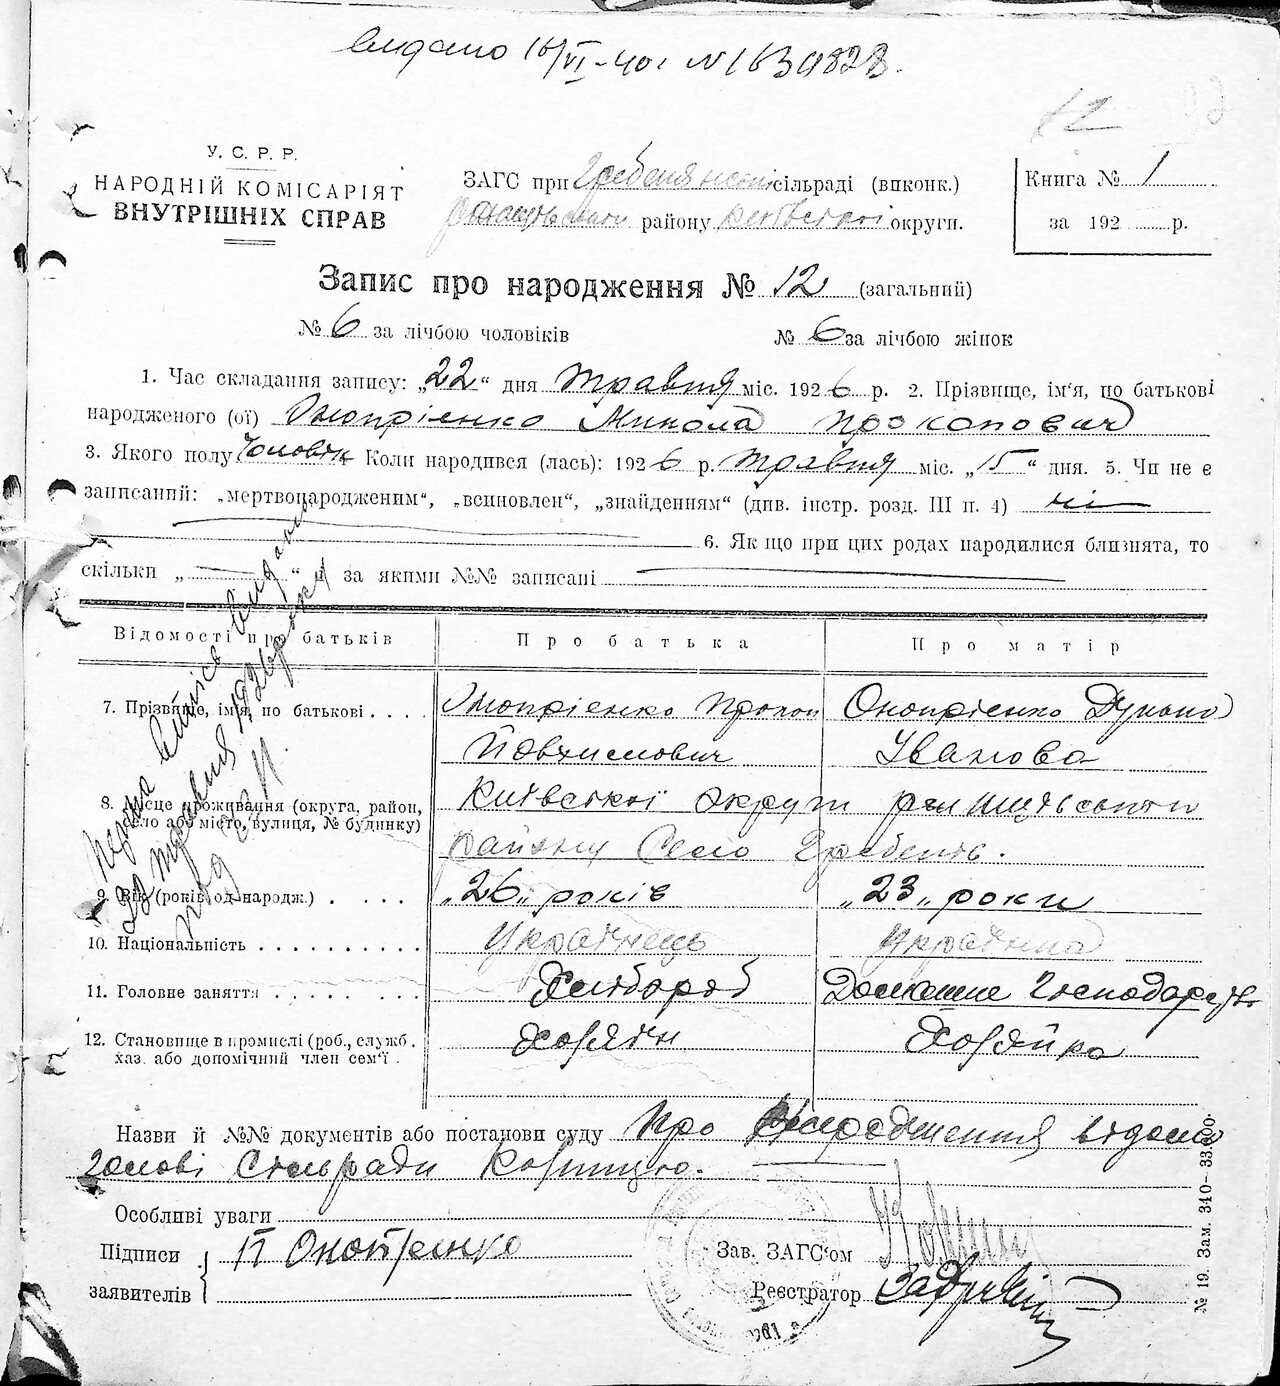 видано 16/VI-40г N 1639828.
12
У. С. Р. Р.
НАРОДНІЙ КОМІСАРІЯТ
ВНУТРІШНІХ СПРАВ
ЗАГС при сільраді (виконк.)
району Київської округи.
Книга № 1
за 192 р.
Запис про народження № 12 (загальний)
№ 6 за лічбою чоловіків № 6 за лічбою жінок
1. Час складання запису: „22“ дня травня міс. 1926 р. 2. Прізвище, ім'я, по батькові
народженого (ої) Онопрієнко Микола Прокопович
3. Якого полу Чоловік Коли народився (лась): 1926 р. травня міс. „15“ дня. 5. Чи не є
записаний: „мертвонародженим“, „всиновлен“, „знайденням“ (див. інстр. розд. III п. 4) ні
6. Якщо при цих родах народилися близнята, то
скільки „ “ і за якими №№ записані
Відомості про батьків Про батька Про матір
7. Прізвище, ім'я, по батькові . . . . Онопрієнко Прокоп Онопрієнко
Іванова
8. Місце проживання (округа, район, Київської округи
село або місто, вулиця, № будинку) району Село Гребень.
9. Вік (років од народж.) . . . . „26„ років „23„ роки
10. Національність . . . . . . . . . . Українець Українка
11. Головне заняття . . . . . . . . Хлібороб Домашнє Господарство
12. Становище в промислі (роб., служб. Хазяїн Хазяйка
хаз. або допомічний член сем'ї .
Перша випись видана
22 травня 1926 року
під № 11.
Назви й №№ документів або постанови суду Про народження відомо
голові Сільради
Особливі уваги
Підписи заявителів П Онопрієнко
Зав. ЗАГС'ом
Реєстратор
№ 19. Зам. 340—33.000.